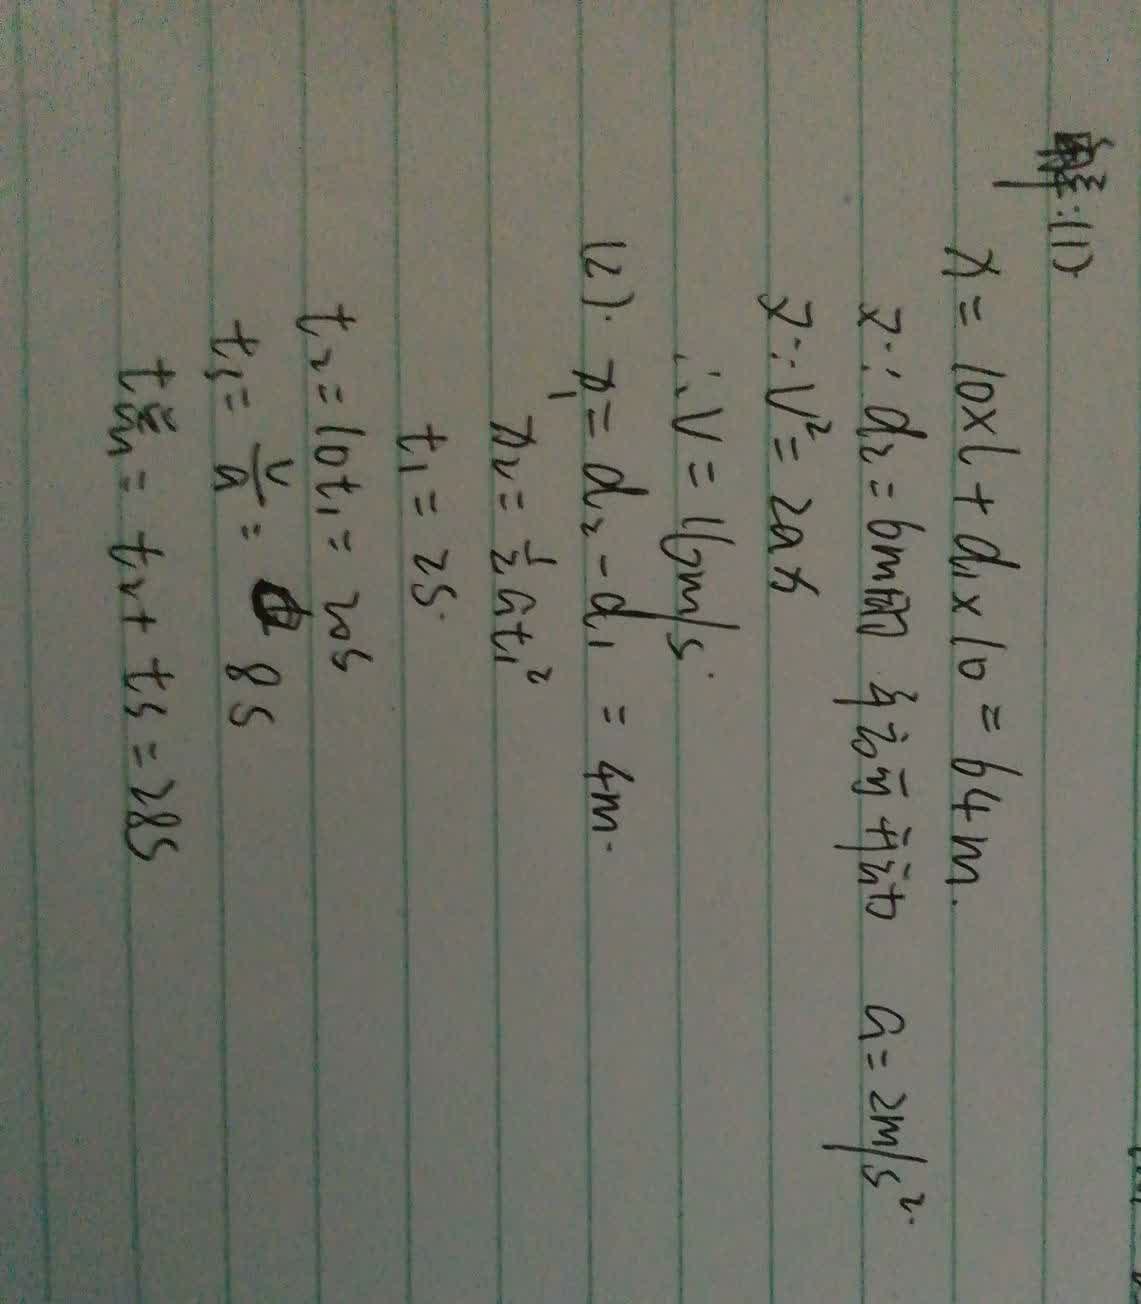 解:(1).
x = 10×L + d₁×10 = 64m.
又∵ d₂ = 6m时 车均已启动 a = 2m/s².
又∵ V² = 2ax
∴ V = 16m/s.
(2). x₁ = d₂ - d₁ = 4m.
x₁ = ½at₁²
t₁ = 2s.
t₂ = 10t₁ = 20s
t₃ = v/a = 8s
t总 = t₂ + t₃ = 28s